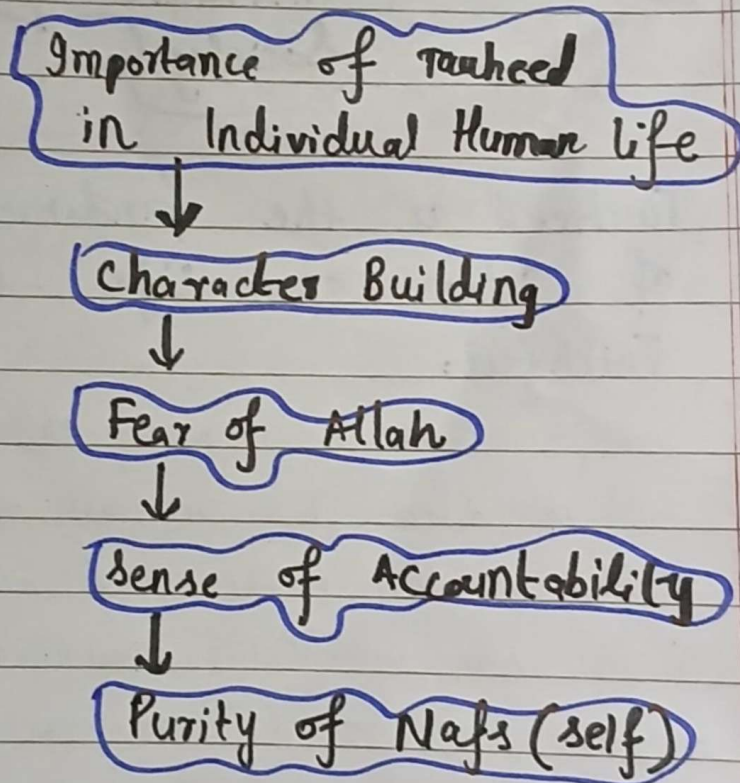 Importance of Tauheed
in Individual Human life
Character Building
Fear of Allah
Sense of Accountability
Purity of Nafs (self)